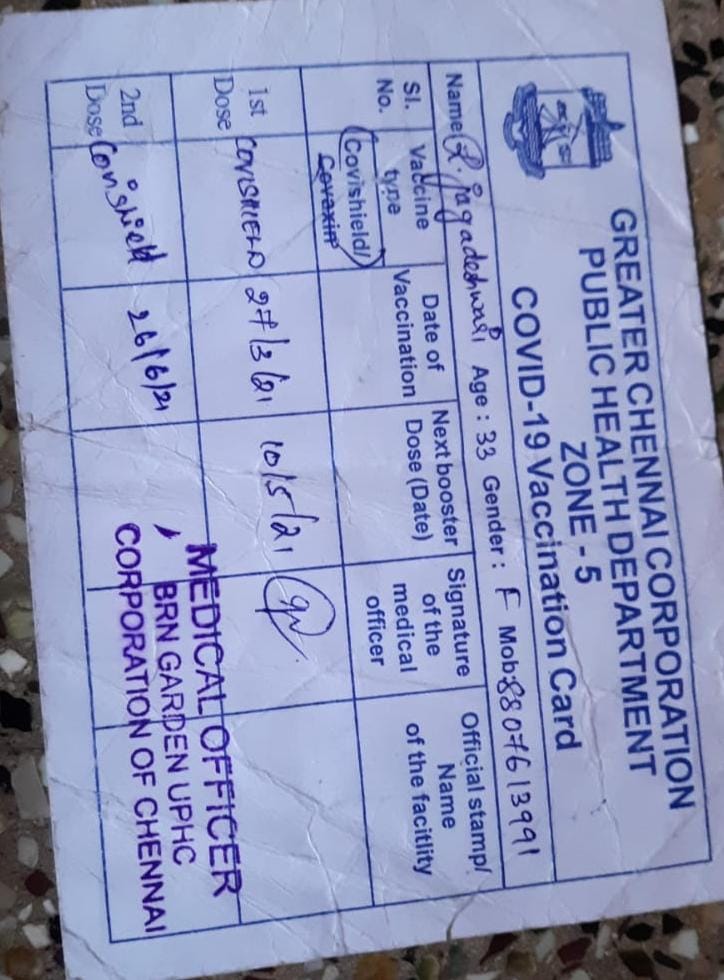 GREATER CHENNAI CORPORATION
PUBLIC HEALTH DEPARTMENT
ZONE - 5
COVID-19 Vaccination Card
Name: R. jagadeshwari Age : 33 Gender : F Mob: 8807613991
Sl. No. Vaccine type (Covishield/ Covaxin Date of Vaccination Next booster Dose (Date) Signature of the medical officer Official stamp/ Name of the facitlity
1st Dose COVISHIELD 27/3/21 10/5/21
2nd Dose Covishield 26/6/21
MEDICAL OFFICER
BRN GARDEN UPHC
CORPORATION OF CHENNAI